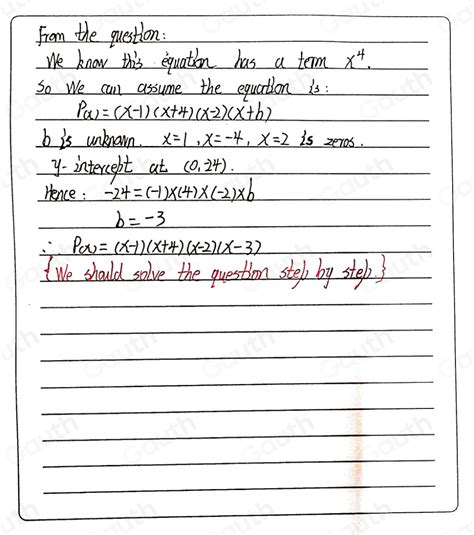 From the question:
We know this equation has a term x⁴.
So We can assume the equation is:
P(x) = (x-1)(x+4)(x-2)(x+b)
b is unknown. x=1, x=-4, x=2 is zeros.
y-intercept at (0,24).
Hence: -24=(-1)×(4)×(-2)×b
b=-3
∴ P(x)=(x-1)(x+4)(x-2)(x-3)
{We should solve the question step by step.}